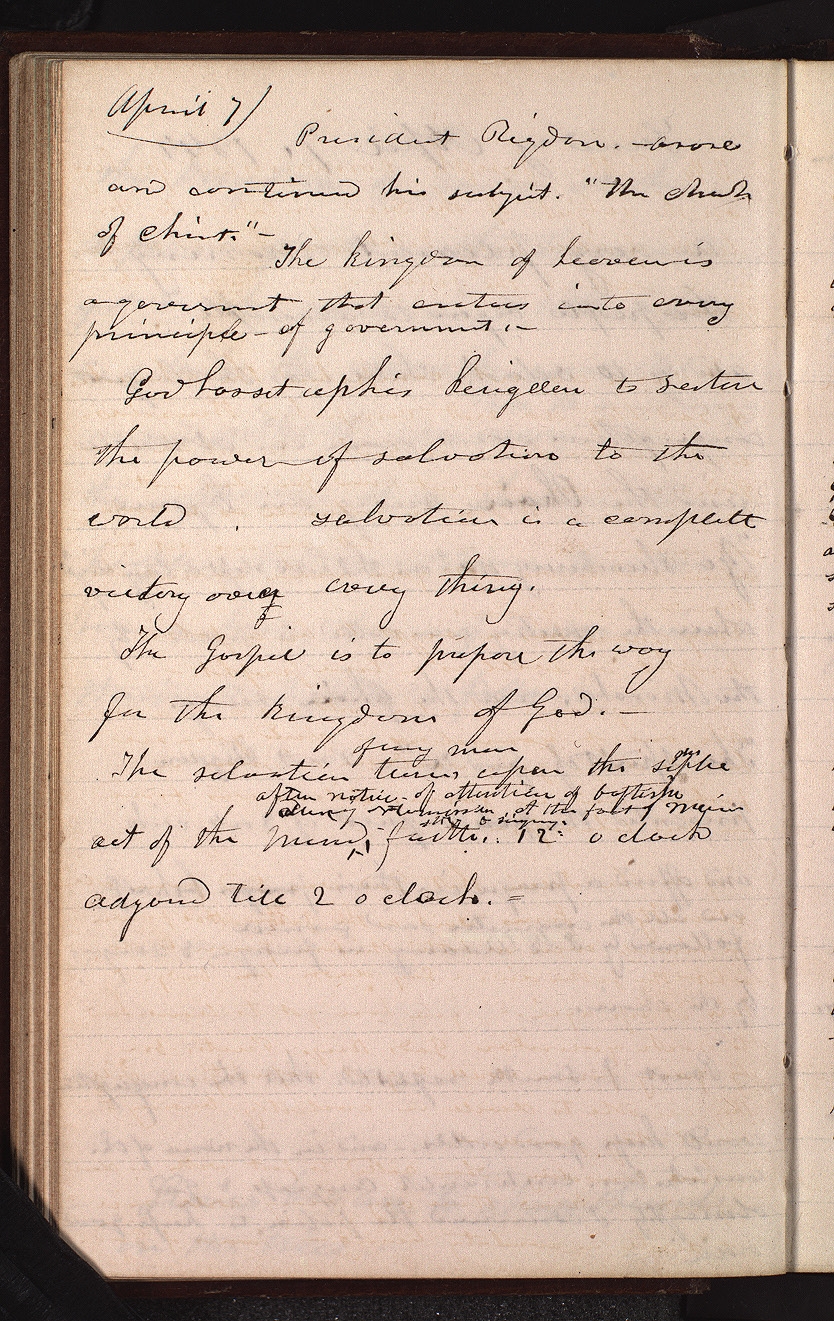 April 7)
President Rigdon. - arose
and continued his subject. "The church
of christ."-
The kingdom of heaven is
a governmt that enters into every
principle - of government.-
God has set up his kingdom to restore
the power of salvation to the
world. salvation is a complete
victory over every thing.
The Gospel is to prepare the way
for the kingdom of God.-
of any man
The salvation turns upon the
after notice of attention of baptism
remission at the foot of main
st & singing.
act of the mind, faith. 12. o clock
adjournd till 2 o clock. =